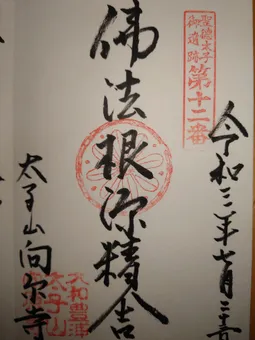 聖徳太子
御遺跡
第十二番
令和三年七月
佛法根源精舎
太子山向原寺
大和豊浦
太子山